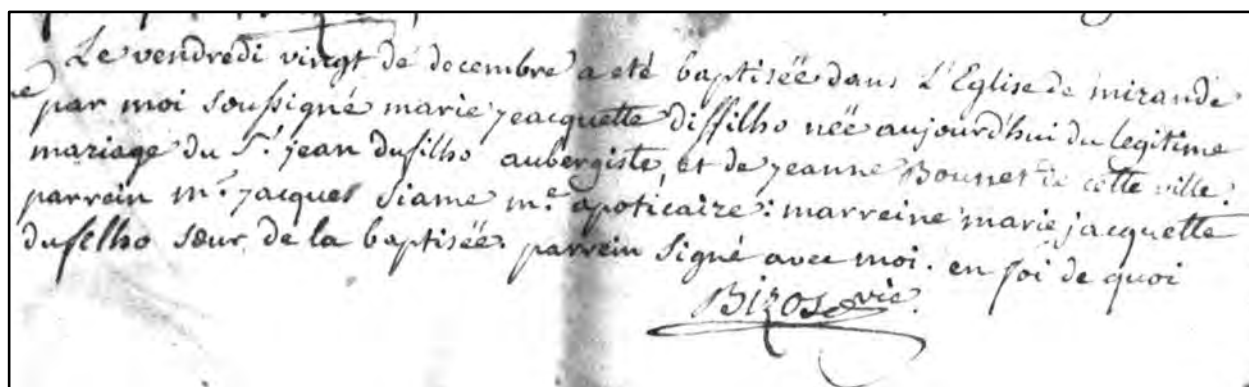 Le vendredi vingt de decembre a eté baptisée dans L'Eglise de mirande
par moi soussigné marie jeacquette diffilho née aujourd'hui du legitime
mariage du Sr. jean dufilho aubergiste, et de jeanne Bounet de cette ville.
parrein mr. jacques Siame me. apoticaire: marreine marie jacquette
dufilho sœur de la baptisée. parrein signé avec moi. en foi de quoi
Bizos vic.